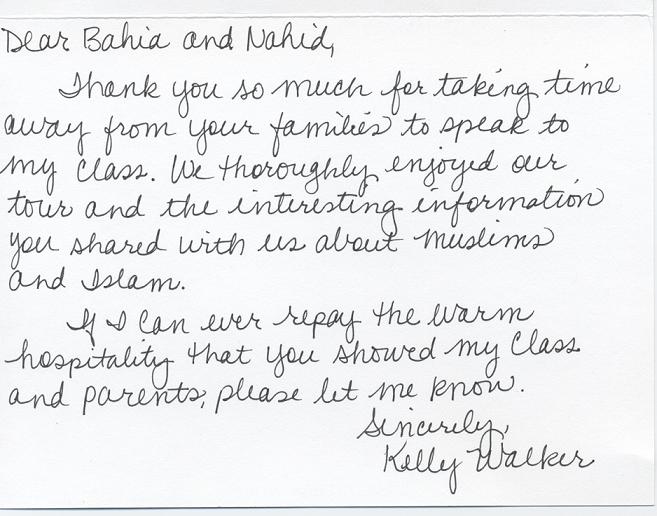 Dear Bahia and Nahid,
Thank you so much for taking time
away from your families to speak to
my class. We thoroughly enjoyed our
tour and the interesting information
you shared with us about Muslims
and Islam.
If I can ever repay the warm
hospitality that you showed my class
and parents, please let me know.
Sincerely,
Kelly Walker